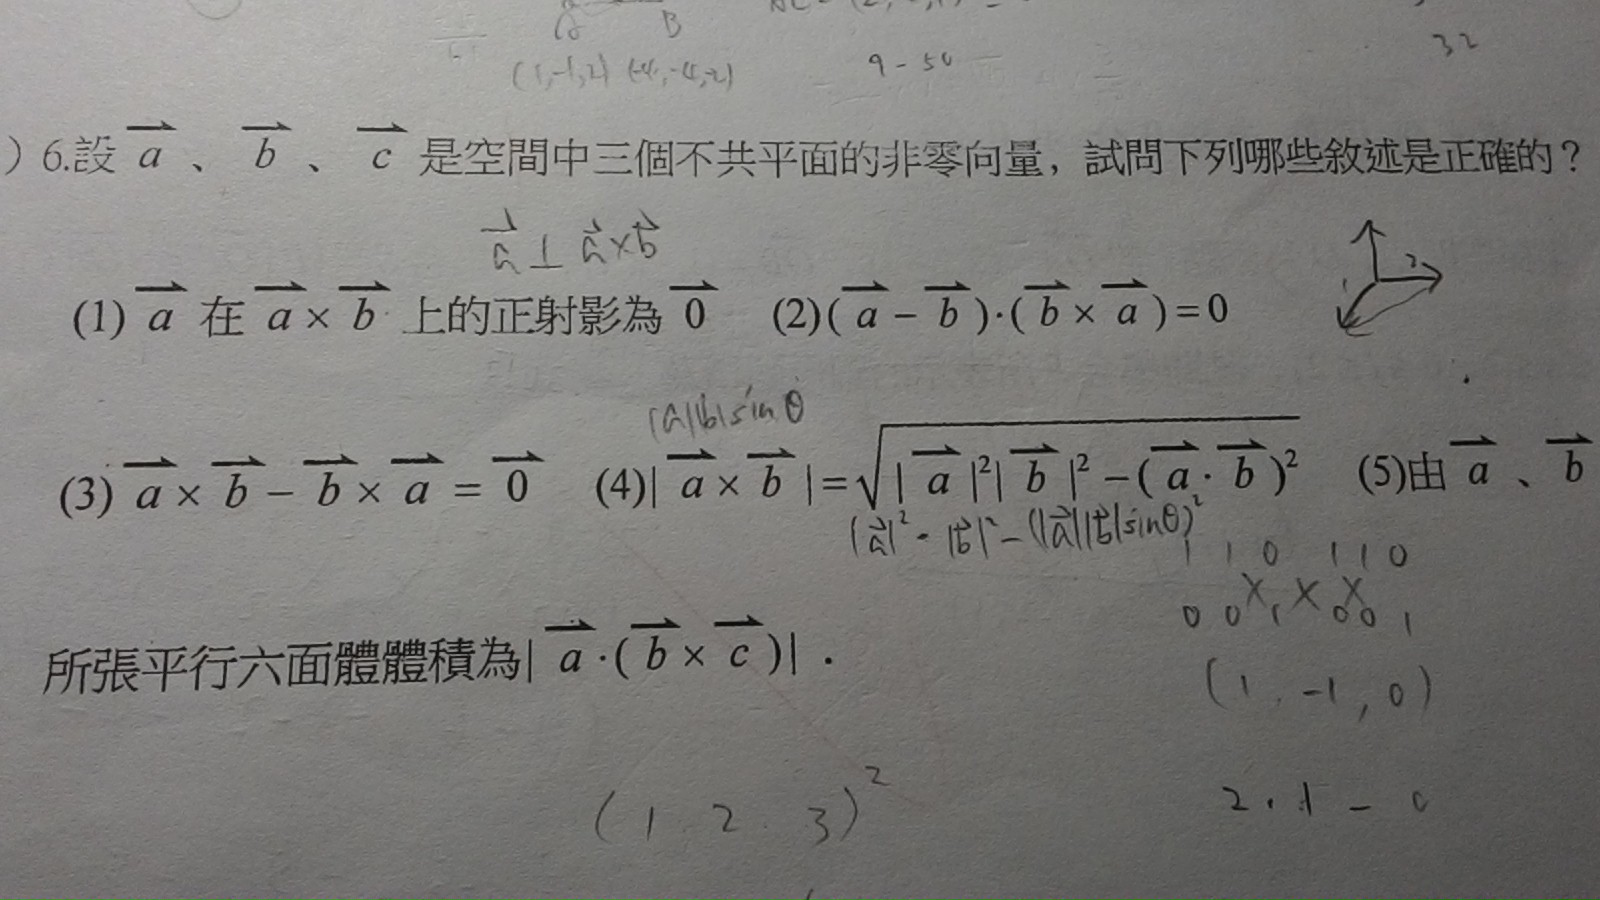 B
(1,-1,2) (-4,-4,-2)
9-54
32
) 6.設 a⃗ 、 b⃗ 、 c⃗ 是空間中三個不共平面的非零向量，試問下列哪些敘述是正確的？
a⃗ ⊥ a⃗×b⃗
(1) a⃗ 在 a⃗ × b⃗ 上的正射影為 0⃗ (2)( a⃗ − b⃗ )·( b⃗ × a⃗ )=0
|a||b|sinθ
(3) a⃗ × b⃗ − b⃗ × a⃗ = 0⃗ (4)| a⃗ × b⃗ |=√(| a⃗ |²| b⃗ |²−( a⃗ · b⃗ )²) (5)由 a⃗ 、 b⃗
|a⃗|²·|b⃗|²−(|a⃗||b⃗|sinθ)²
1 1 0 1 1 0
0 0 1 0 0 1
所張平行六面體體積為| a⃗ ·( b⃗ × c⃗ )|．
(1,-1,0)
(1.2.3)²
2·1-